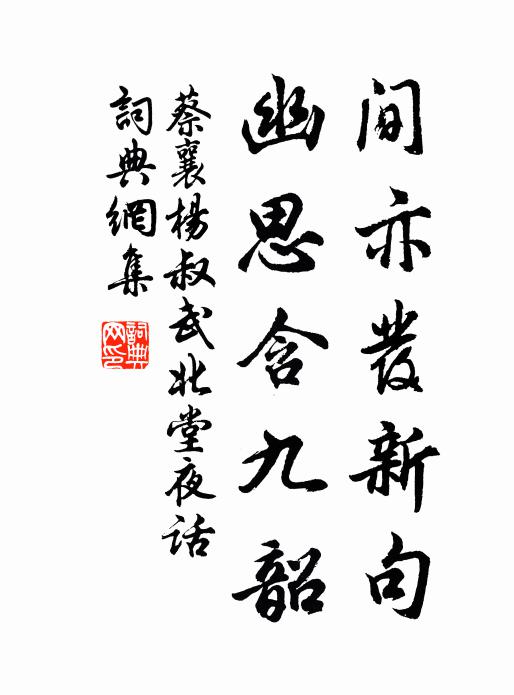 间亦發新句
幽思含九韶
蔡襄楊叔武北堂夜话
詞典網集
詞典網印